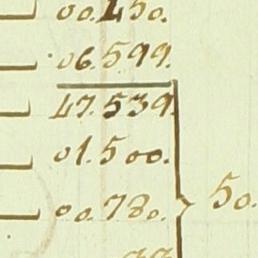 00.450.
06.599.
47.539.
01.500.
00.780.
50.